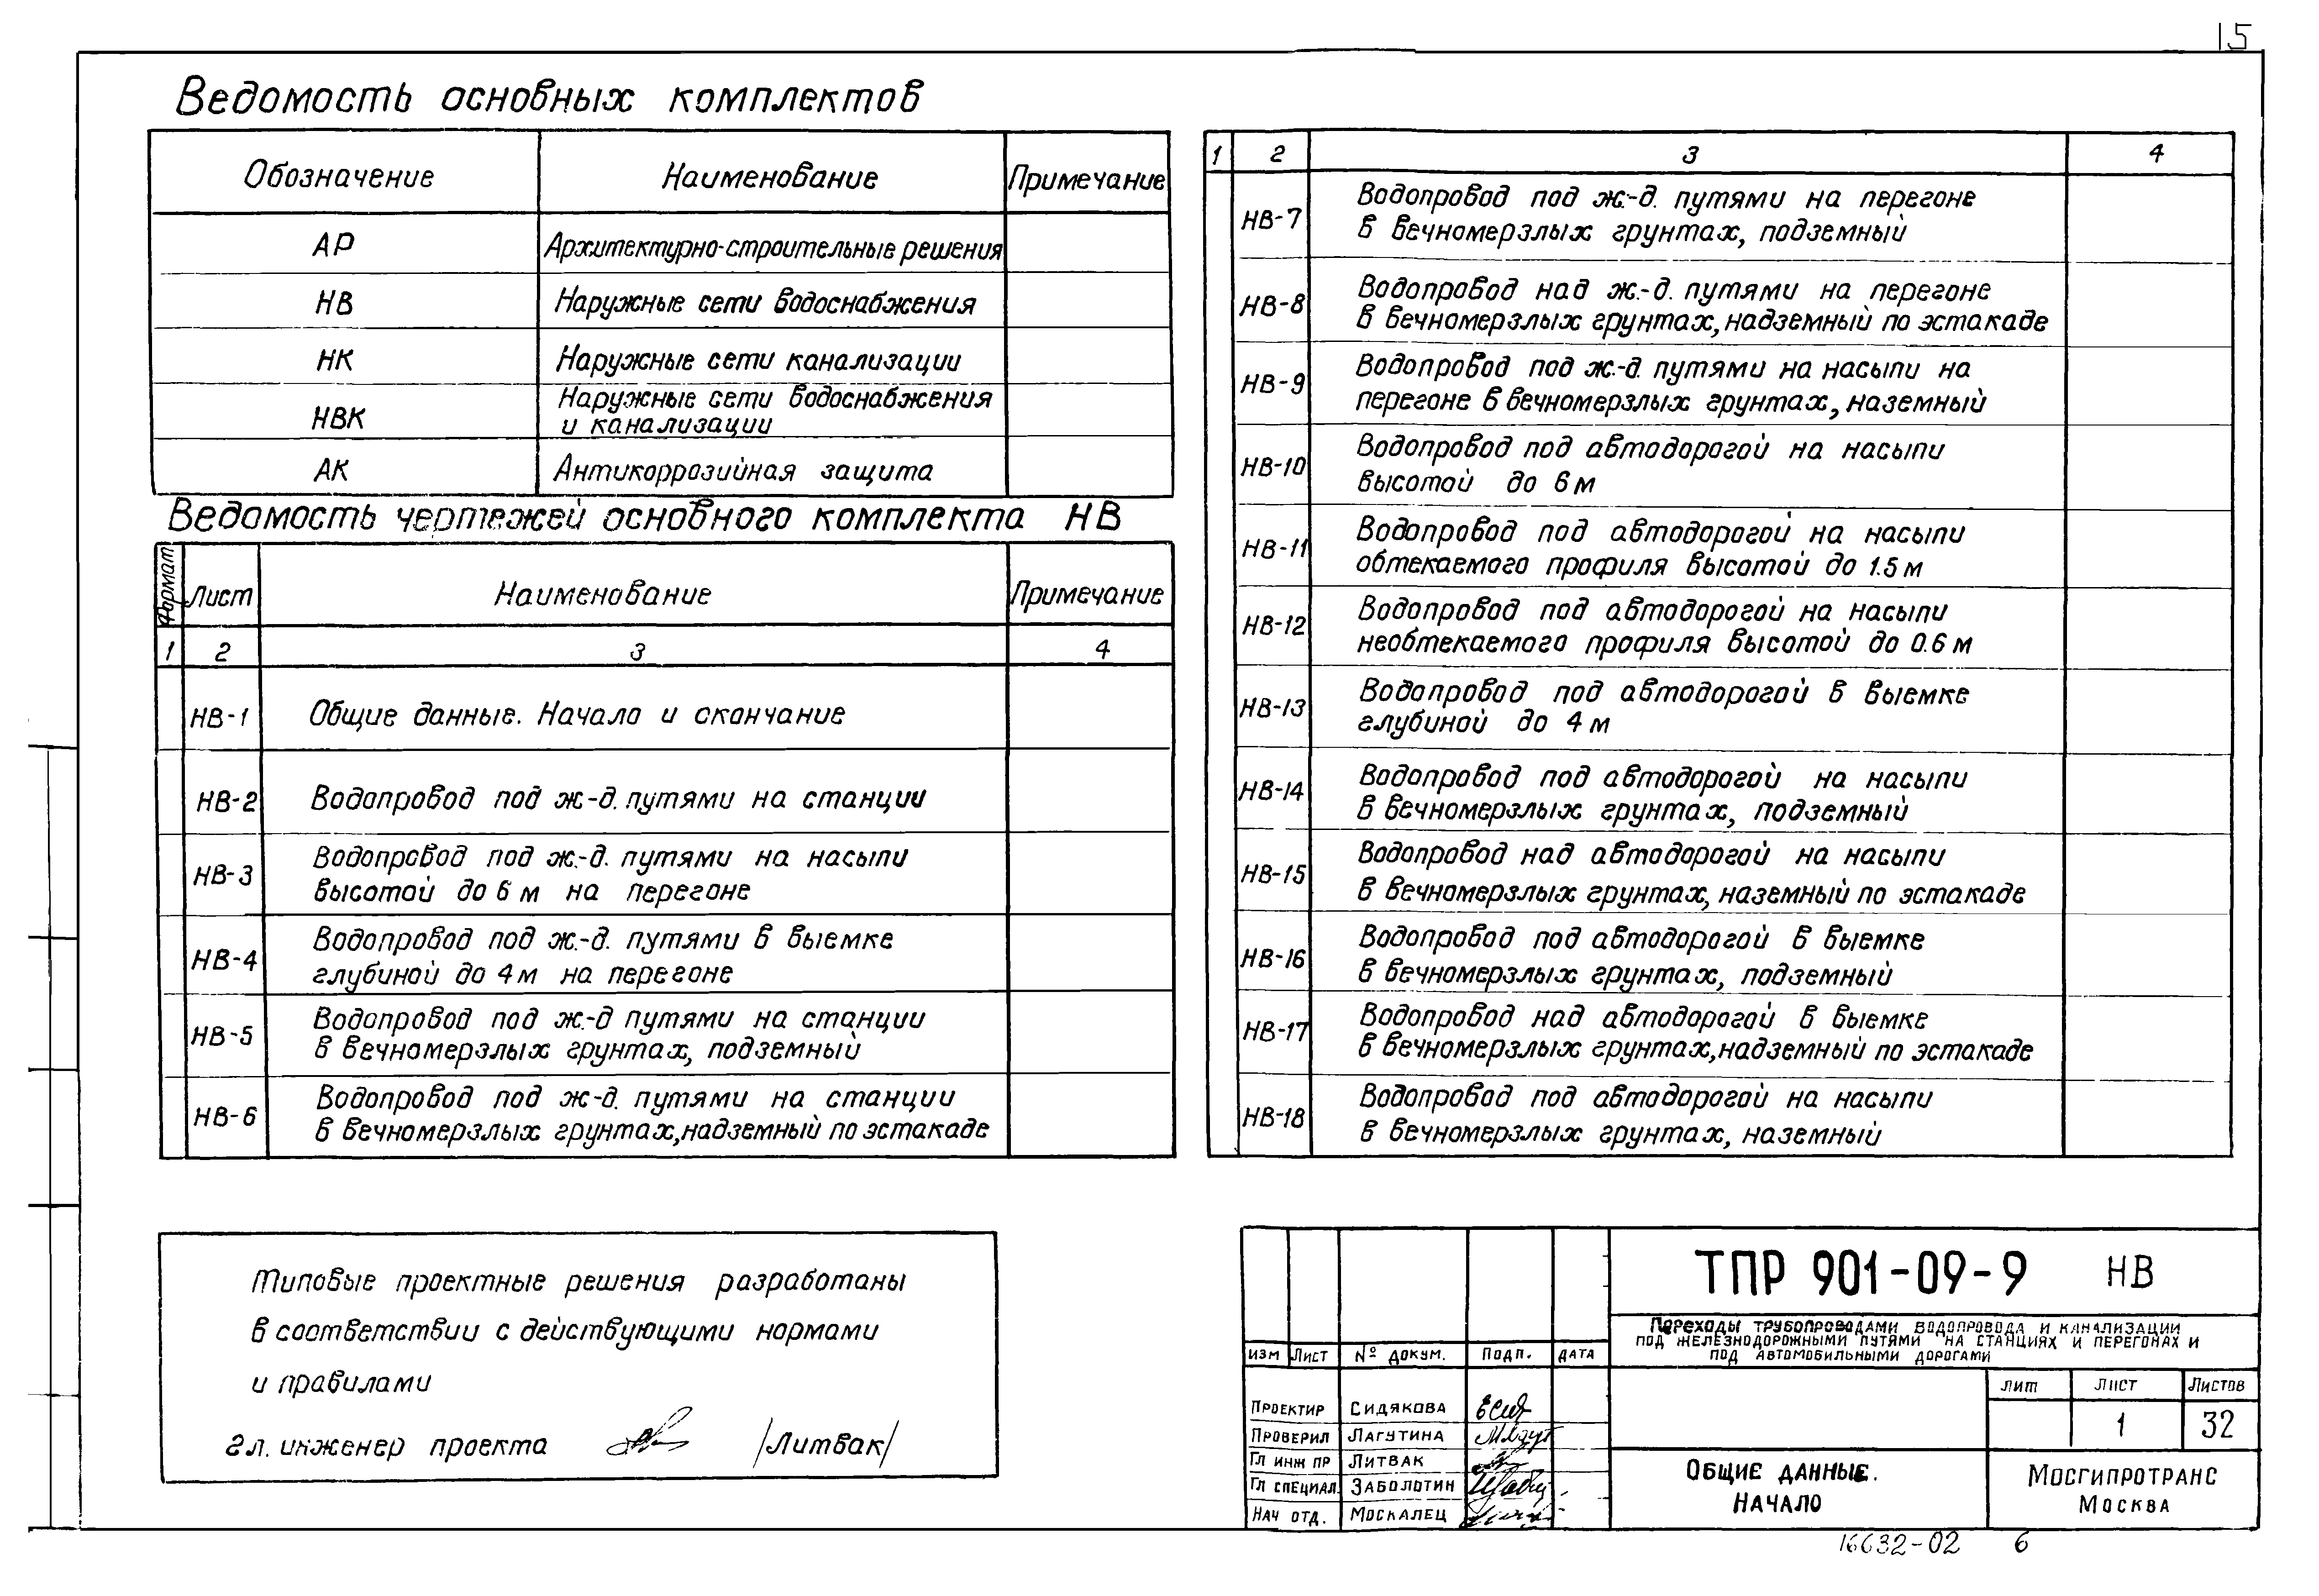 15
Ведомость основных комплектов
Обозначение Наименование Примечание
АР Архитектурно-строительные решения
НВ Наружные сети водоснабжения
НК Наружные сети канализации
НВК Наружные сети водоснабжения
и канализации
АК Антикоррозийная защита
Ведомость чертежей основного комплекта НВ
Формат Лист Наименование Примечание
1 2 3 4
НВ-1 Общие данные. Начало и скончание
НВ-2 Водопровод под ж-д. путями на станции
НВ-3 Водопровод под ж.-д. путями на насыпи
высотой до 6 м на перегоне
НВ-4 Водопровод под ж.-д. путями в выемке
глубиной до 4 м на перегоне
НВ-5 Водопровод под ж.-д путями на станции
в вечномерзлых грунтах, подземный
НВ-6 Водопровод под ж-д. путями на станции
в вечномерзлых грунтах, надземный по эстакаде
1 2 3 4
НВ-7 Водопровод под ж.-д. путями на перегоне
в вечномерзлых грунтах, подземный
НВ-8 Водопровод над ж.-д. путями на перегоне
в вечномерзлых грунтах, надземный по эстакаде
НВ-9 Водопровод под ж.-д. путями на насыпи на
перегоне в вечномерзлых грунтах, наземный
НВ-10 Водопровод под автодорогой на насыпи
высотой до 6 м
НВ-11 Водопровод под автодорогой на насыпи
обтекаемого профиля высотой до 1.5 м
НВ-12 Водопровод под автодорогой на насыпи
необтекаемого профиля высотой до 0.6 м
НВ-13 Водопровод под автодорогой в выемке
глубиной до 4 м
НВ-14 Водопровод под автодорогой на насыпи
в вечномерзлых грунтах, подземный
НВ-15 Водопровод над автодорогой на насыпи
в вечномерзлых грунтах, наземный по эстакаде
НВ-16 Водопровод под автодорогой в выемке
в вечномерзлых грунтах, подземный
НВ-17 Водопровод над автодорогой в выемке
в вечномерзлых грунтах, надземный по эстакаде
НВ-18 Водопровод под автодорогой на насыпи
в вечномерзлых грунтах, наземный
Типовые проектные решения разработаны
в соответствии с действующими нормами
и правилами
гл. инженер проекта /Литвак/
ТПР 901-09-9 НВ
Переходы трубопроводами водопровода и канализации
под железнодорожными путями на станциях и перегонах и
под автомобильными дорогами
изм Лист № докум. Подп. Дата
Проектир Сидякова
Проверил Лагутина
Гл инж пр Литвак
Гл специал. Заболотин
Нач отд. Москалец
лит Лист Листов
1 32
Общие данные.
Начало
Мосгипротранс
Москва
16632-02 6